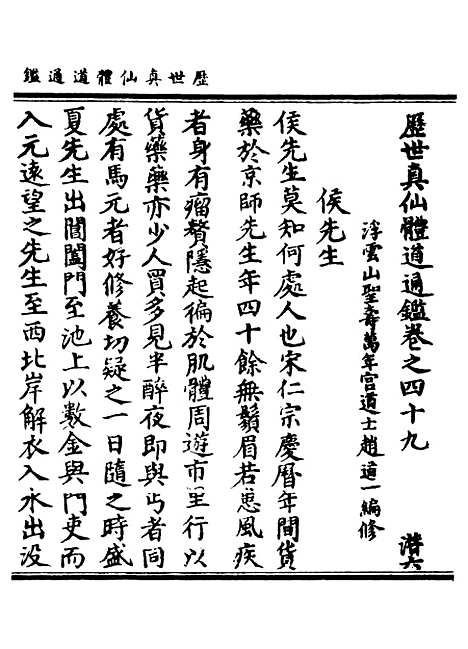 歷世真仙體道通鑑
歷世真仙體道通鑑卷之四十九 潛六
浮雲山聖壽萬年宮道士趙道一編修
侯先生
侯先生莫知何處人也宋仁宗慶曆年間貨
藥於京師先生年四十餘無鬚眉若患風疾
者身有瘤贅隱起徧於肌體周遊市里行以
貨藥藥亦少人買多見半醉夜即與丐者同
處有馬元者好修養切疑之一日隨之時盛
夏先生出閶闔門至池上以數金與門吏而
入元遠望之先生至西北岸解衣入水出沒